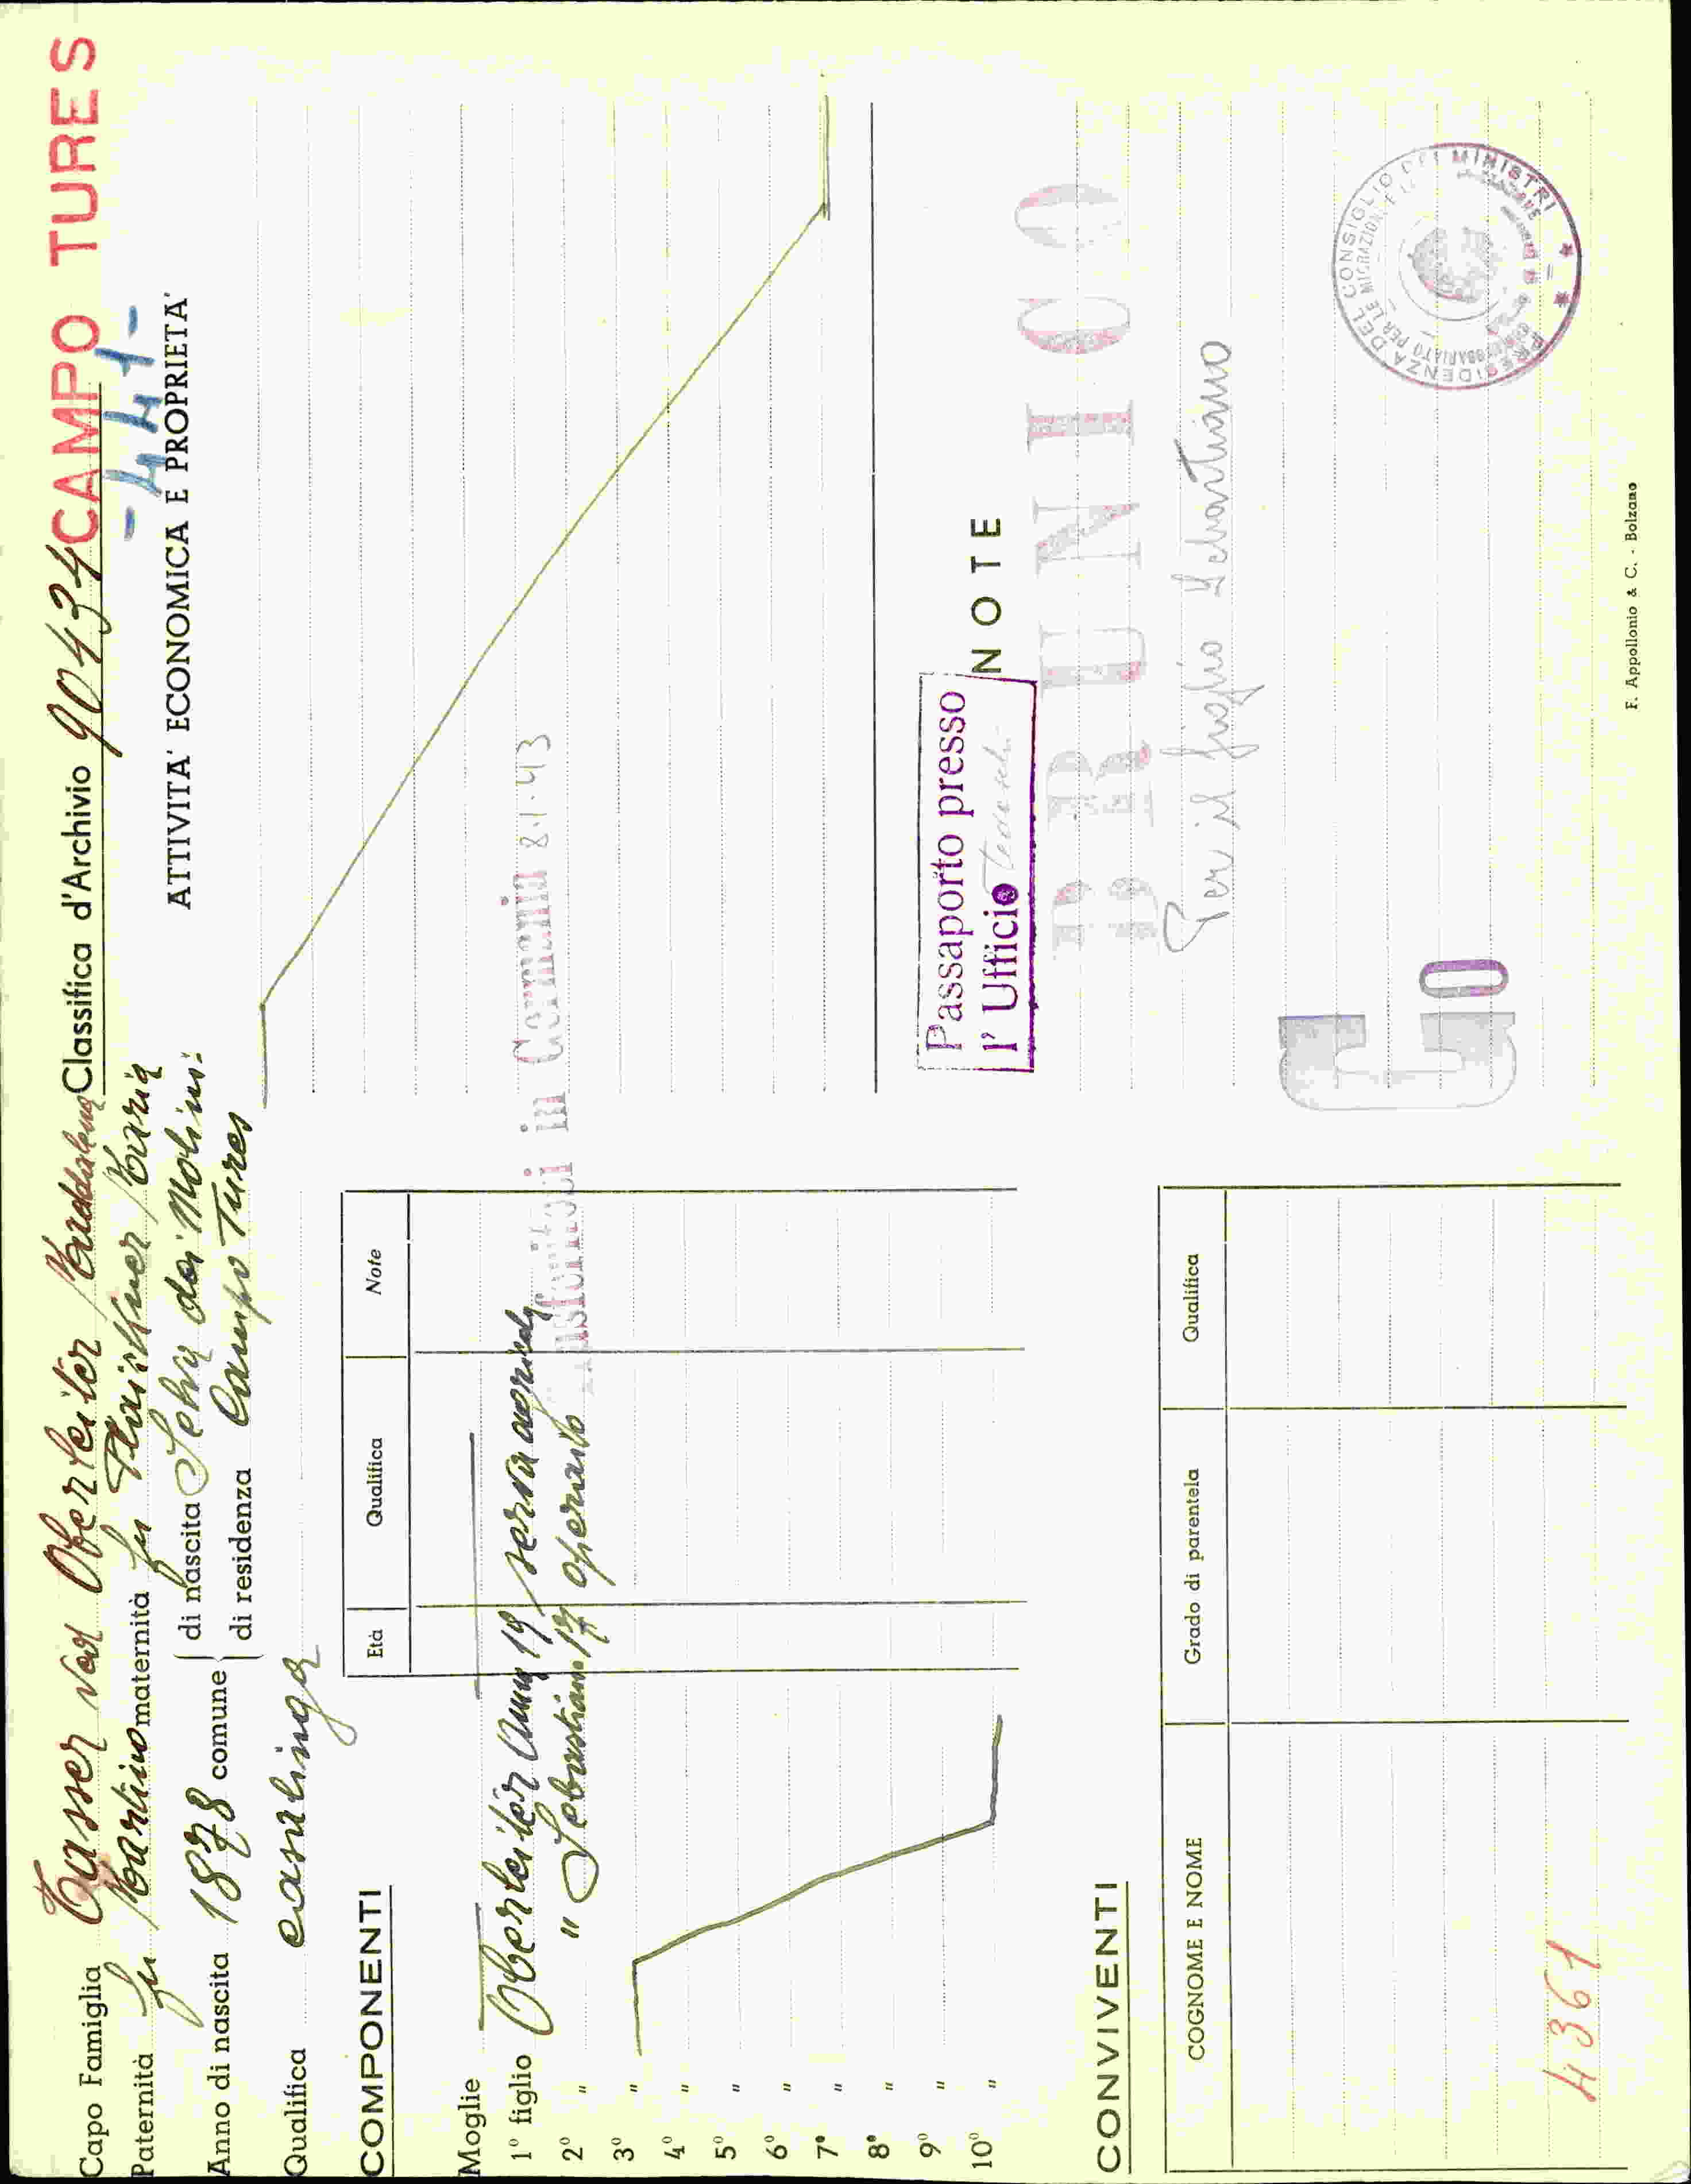 Capo Famiglia Tasser ved Oberleiter Maddalena Classifica d'Archivio 90434 CAMPO TURES
Paternità fu Martino maternità fu Maria
- 441 -
Anno di nascita 1878 comune di nascita Selva dei Molini
di residenza Campo Tures
Qualifica casalinga
ATTIVITA' ECONOMICA E PROPRIETA'
COMPONENTI
Età Qualifica Note
Moglie
1° figlio Oberleiter Anna 19 serva agricola
2° " " Sebastiano 17 operaio
Trasferitosi in Germania 8.1.43
3° "
4° "
5° "
6° "
7° "
8° "
9° "
10° "
Passaporto presso
l' Ufficio
NOTE
BRUNICO
Per il figlio Sebastiano
G
0
PRESIDENZA DEL CONSIGLIO DEI MINISTRI
CONVIVENTI
COGNOME E NOME Grado di parentela Qualifica
4361
F. Appollonio & C. - Bolzano